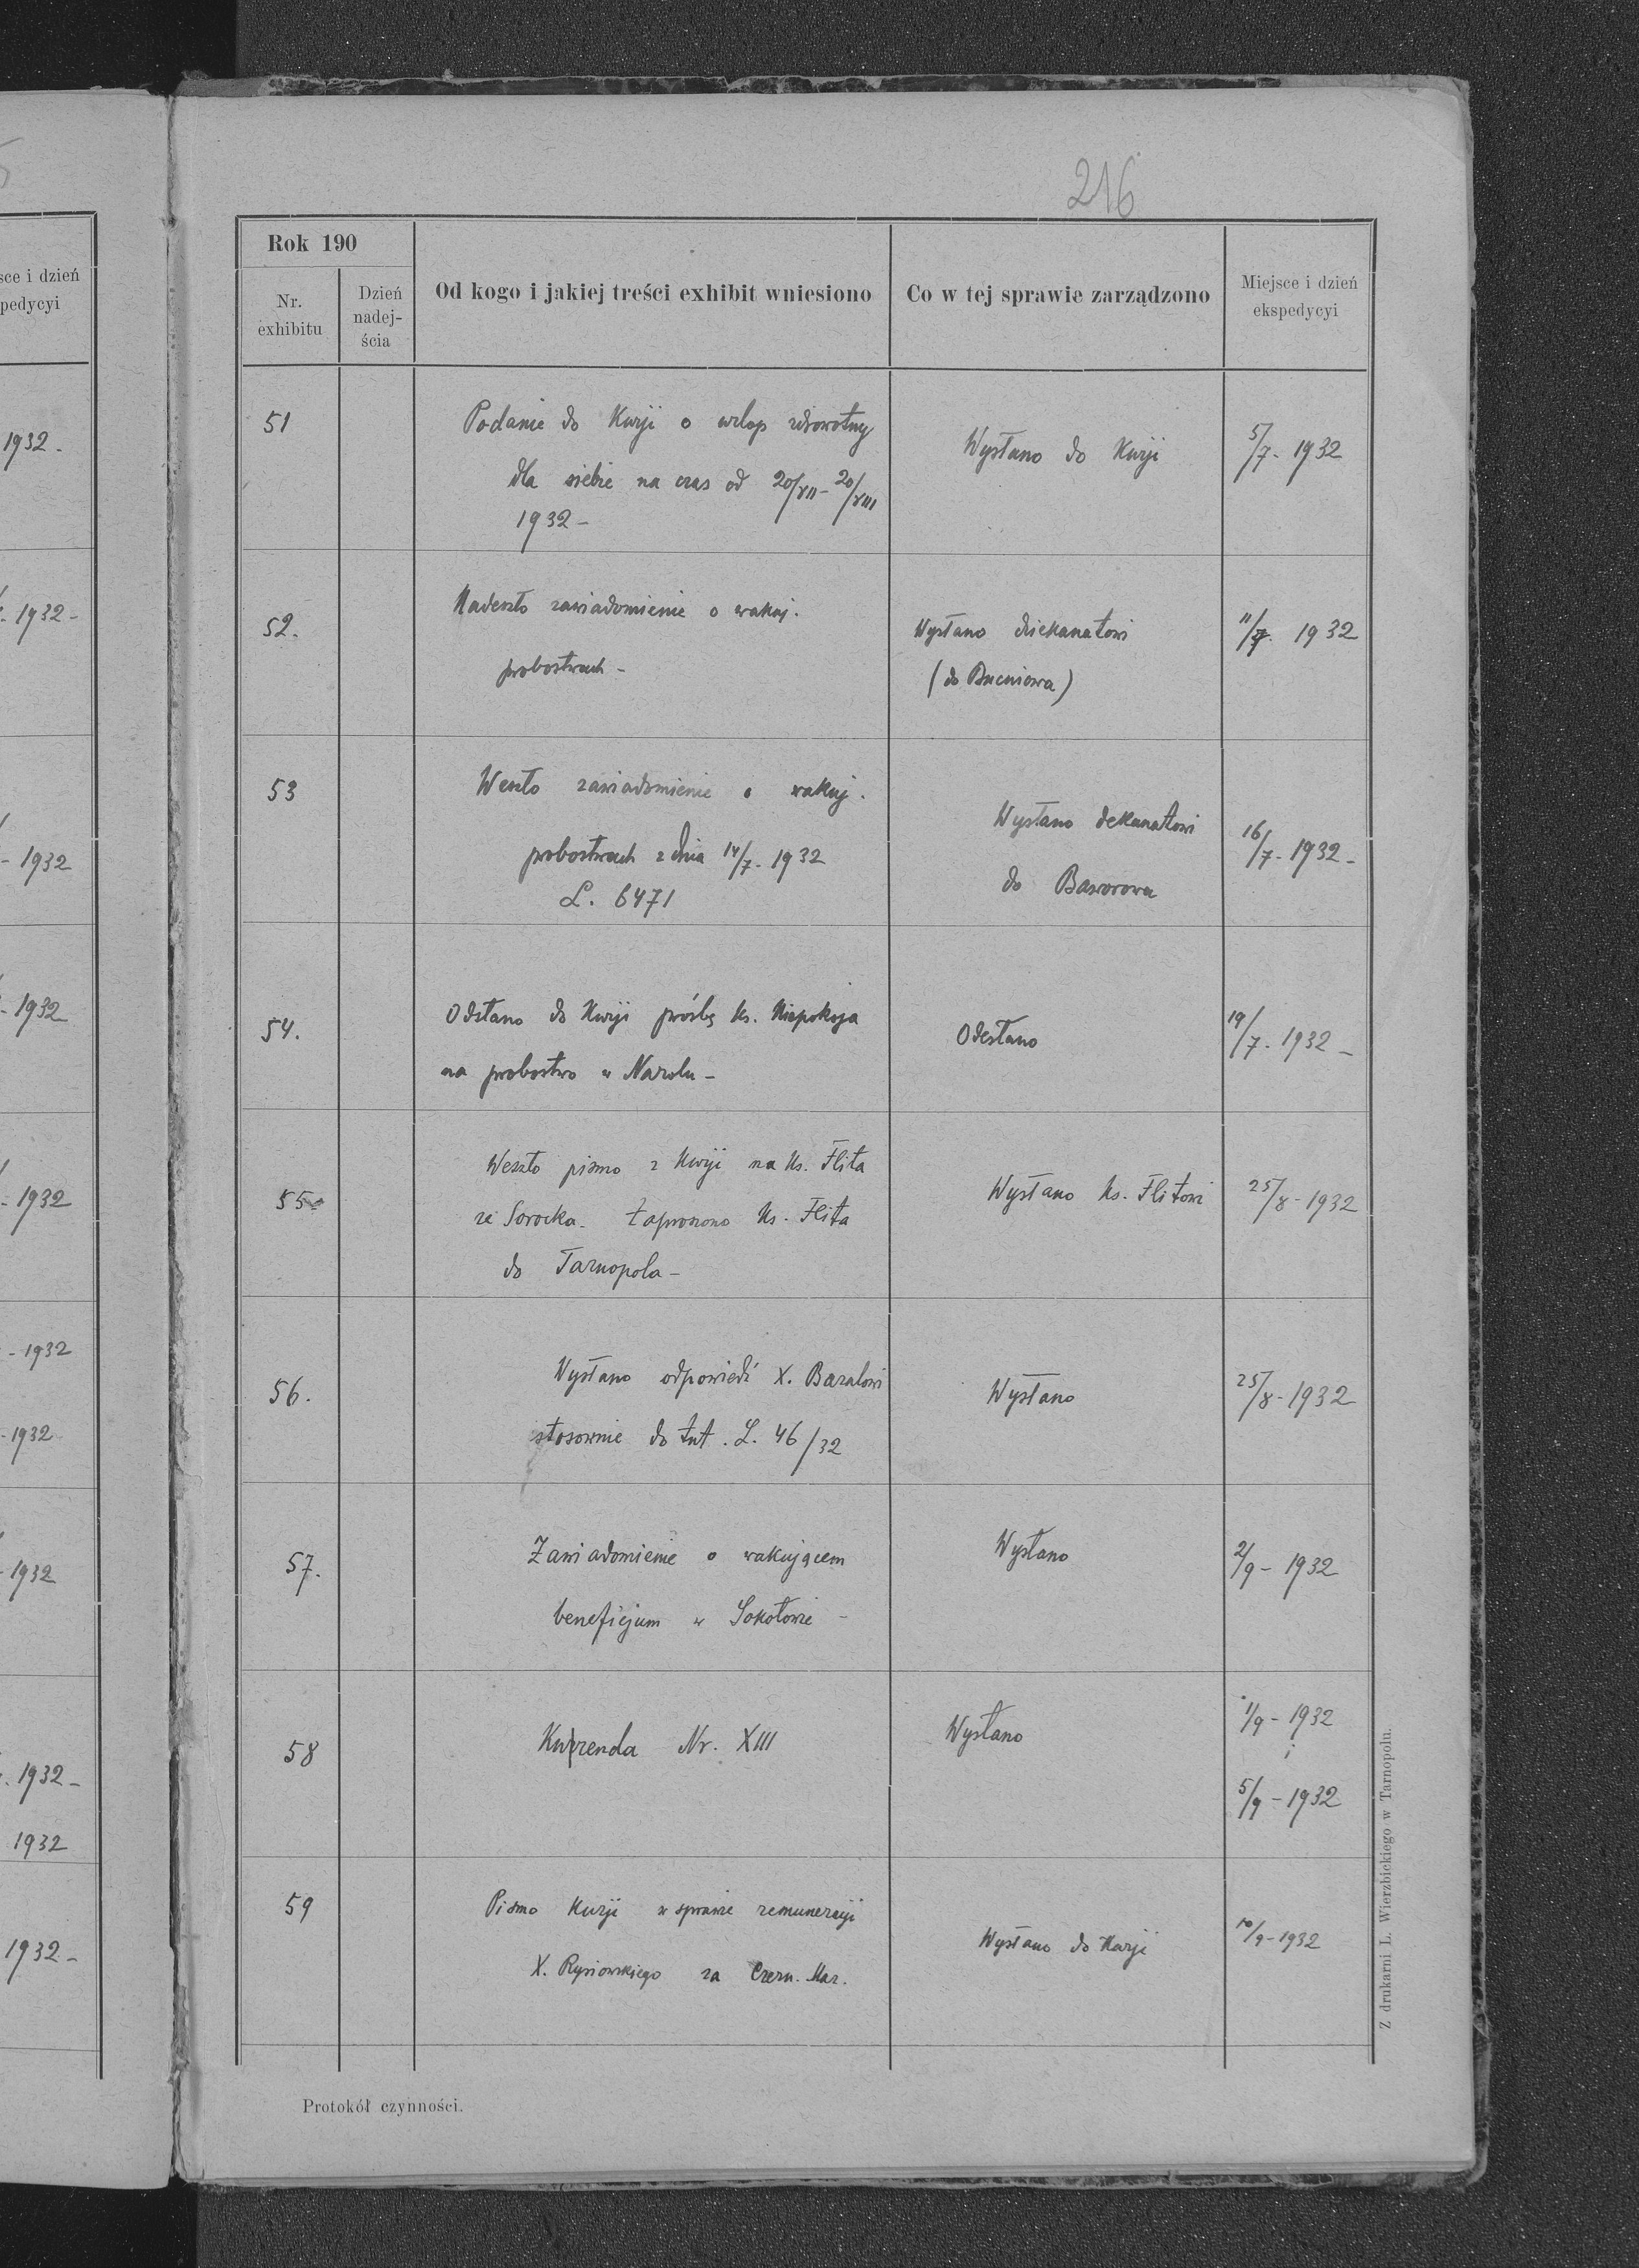 5
sce i dzień
pedycyi
1932 -
1932 -
- 1932
- 1932
- 1932
- 1932
- 1932
- 1932
. 1932 -
1932
1932 -
216
Rok 190
Nr.
exhibitu
Dzień
nadej-
ścia
Od kogo i jakiej treści exhibit wniesiono
Co w tej sprawie zarządzono
Miejsce i dzień
ekspedycyi
51
Podanie do Kurji o urlop zdrowotny
dla siebie na czas od 20/VII - 20/VIII
1932 -
Wysłano do Kurji
5/7 - 1932
52.
Nadeszło zawiadomienie o wakuj.
probostwach -
Wysłano dziekanatowi
(do Bucniowa)
11/7. 1932
53
Weszło zawiadomienie o wakuj.
probostwach z dnia 14/7 - 1932
L. 6471
Wysłano dekanatowi
do Baworowa
16/7 - 1932 -
54.
Odsłano do Kurji prośbę ks. Niepokoja
na probostwo w Narolu -
Odesłano
19/7 - 1932 -
55
Weszło pismo z Kurji na ks. Flita
ze Sorocka. Zaproszono ks. Flita
do Tarnopola -
Wysłano ks. Flitowi
25/8 - 1932
56.
Wysłano odpowiedź X. Baralowi
stosownie do tut. L. 46/32
Wysłano
25/8 - 1932
57.
Zawiadomienie o wakującem
beneficjum w Sokołowie -
Wysłano
2/9 - 1932
58
Kurrenda Nr. XIII
Wysłano
1/9 - 1932
i
5/9 - 1932
59
Pismo Kurji w sprawie remuneracji
X. Rysiowskiego za Czern. Maz.
Wysłano do Kurji
10/9 - 1932
Protokół czynności.
Z drukarni L. Wierzbickiego w Tarnopolu.